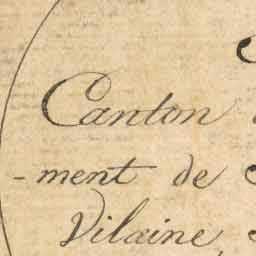 Canton
-ment de
Vilaine,